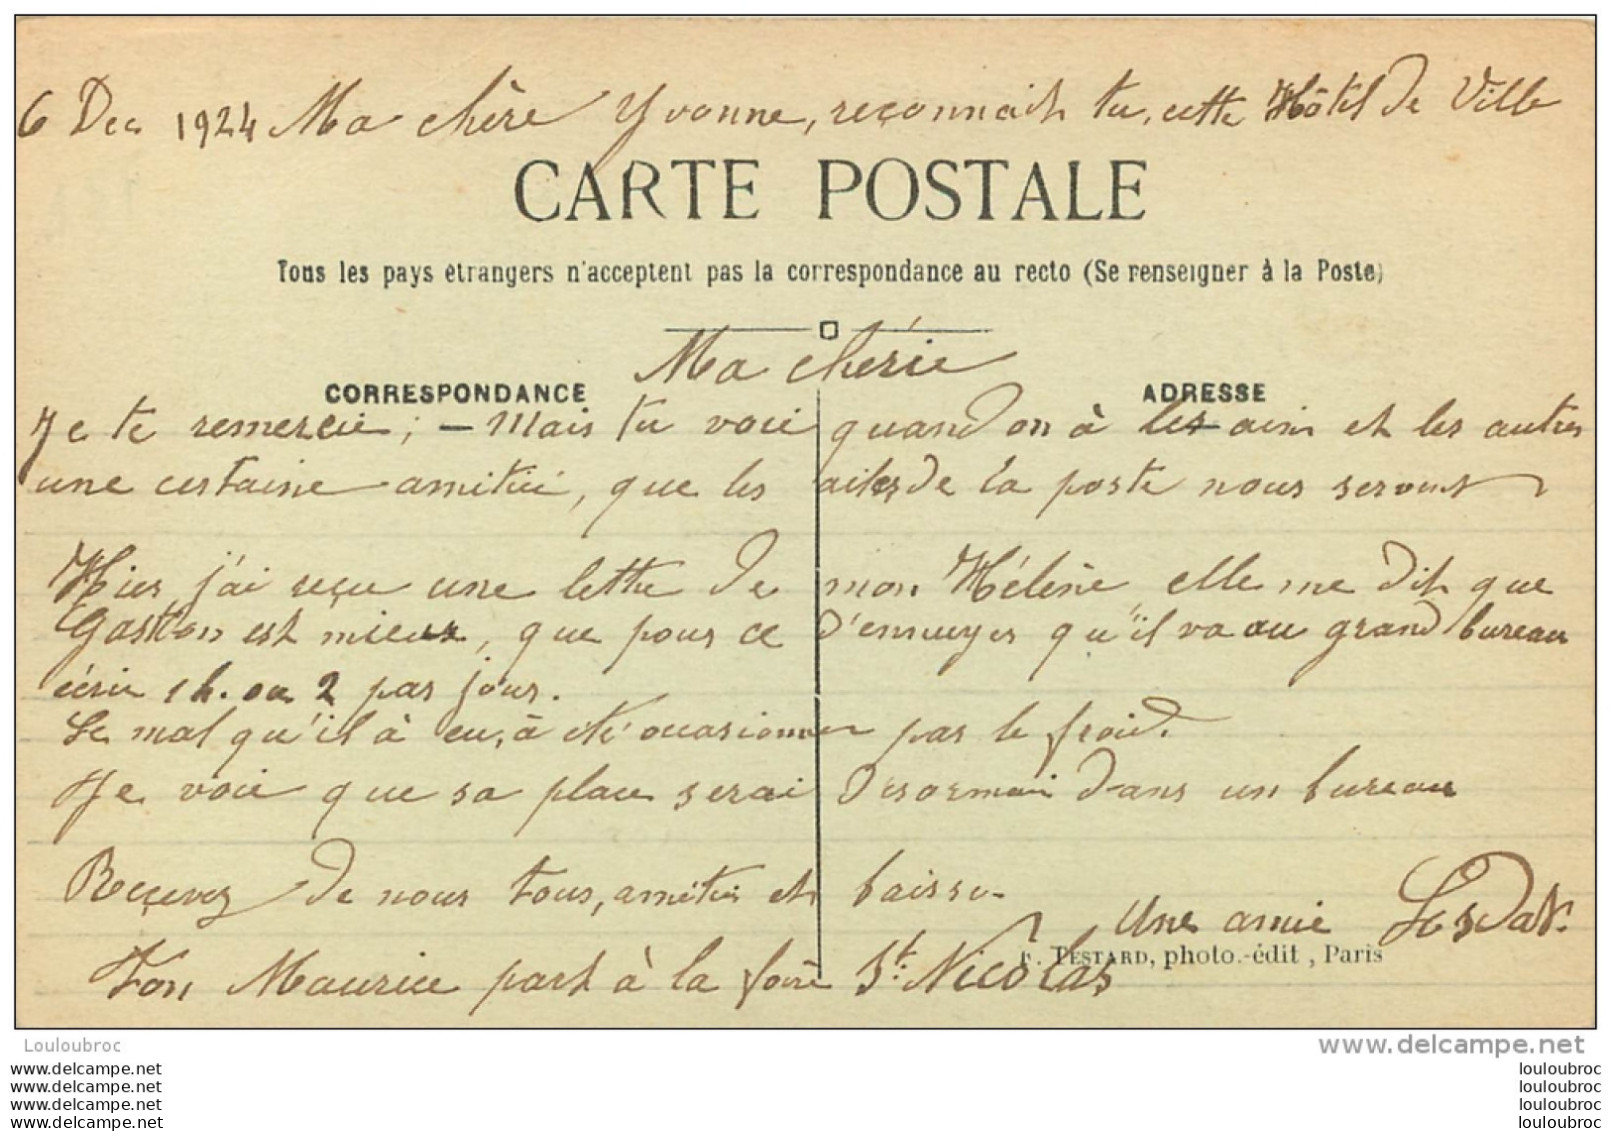 6 Dec 1924 Ma chère Yvonne, reçonnaih tu, cette Hôtel de Ville
CARTE POSTALE
Tous les pays étrangers n'acceptent pas la correspondance au recto (Se renseigner à la Poste)
Ma chérie
CORRESPONDANCE ADRESSE
Je te remercie; — Mais tu voie quand on à les uns et les autres
une certaine amitié, que les ailes de la poste nous servent
Hier, j'ai reçu une lettre de mon Hélène elle me dit que
Gaston est mieux, que pour ce d'ennuyer qu'il va au grand bureau
écrire 1 h. ou 2 par jour.
Le mal qu'il à eu, à été occasionner par le froid.
Je voie que sa place serai desormais dans un bureau
Reçevez de nous tous, amitié et baiser
Une amie
P. TESTARD, photo.-édit, Paris
Ton Maurice part à la foire St. Nicolas
Louloubroc
www.delcampe.net
www.delcampe.net
www.delcampe.net
www.delcampe.net
www.delcampe.net
louloubroc
louloubroc
louloubroc
louloubroc